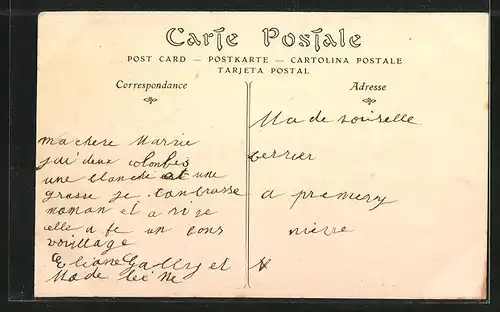 Carte Postale
POST CARD — POSTKARTE — CARTOLINA POSTALE
TARJETA POSTAL
Correspondance
ma chere Marrie
jai deux colonbes
une blanche et une
grosse je tanbrasse
moman et a
elle a fe un bons
vouillage
Eliane Gally et
Made lei ne
Adresse
Ma de moiselle
terrier
a premery
nievre